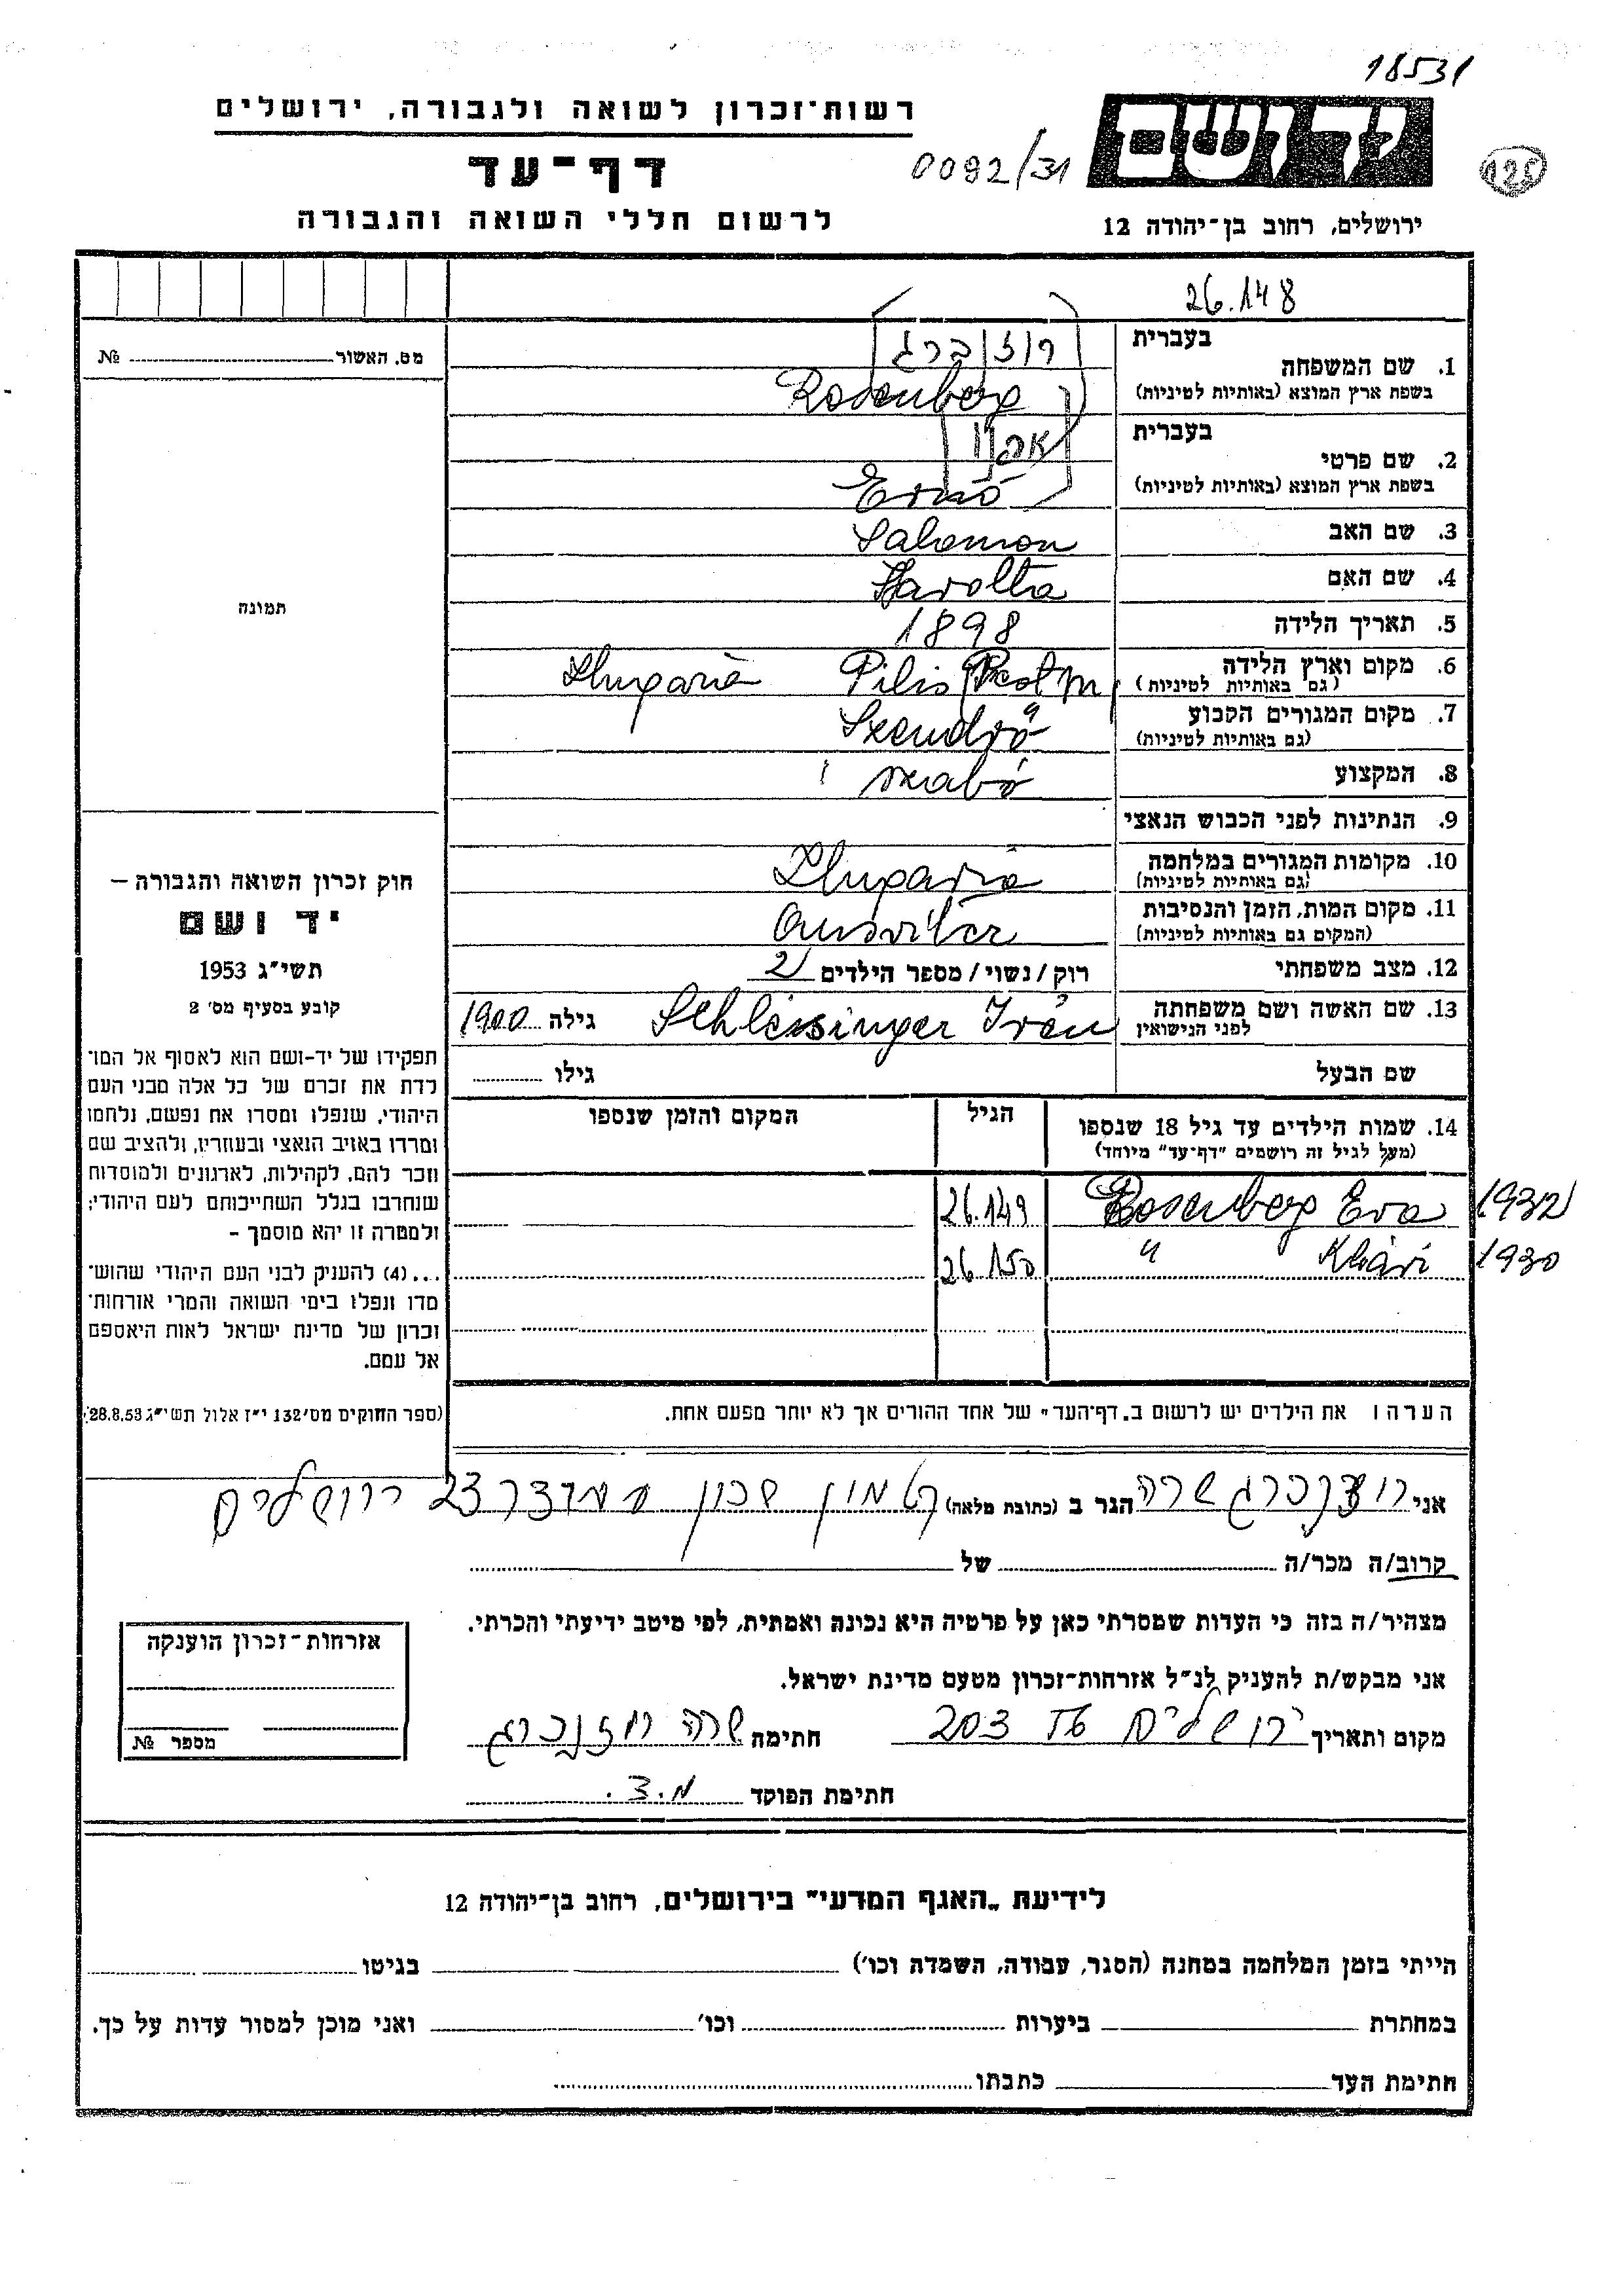 18531
רשות-זכרון לשואה ולגבורה, ירושלים
ידושם
125
דף-עד
0092/31
לרשום חללי השואה והגבורה
ירושלים, רחוב בן-יהודה 12
26.148
מס. האשור № 
בעברית
רוזנברג
1. שם המשפחה
בשפת ארץ המוצא (באותיות לטיניות)
Rosenberg
בעברית
2. שם פרטי
בשפת ארץ המוצא (באותיות לטיניות)
Ernő
3. שם האב Salamon
4. שם האם Sarolta
5. תאריך הלידה 1898
6. מקום וארץ הלידה Pilis Pest m Hungaria
(גם באותיות לטיניות)
7. מקום המגורים הקבוע Szendrő
(גם באותיות לטיניות)
8. המקצוע szabó
9. הנתינות לפני הכבוש הנאצי
10. מקומות המגורים במלחמה Hungaria
(גם באותיות לטיניות)
11. מקום המות, הזמן והנסיבות
(המקום גם באותיות לטיניות)
12. מצב משפחתי רוק/נשוי/מספר הילדים 2
13. שם האשה ושם משפחתה Schlessinger Irén גילה 1900
לפני הנישואין
שם הבעל גילו
14. שמות הילדים עד גיל 18 שנספו הגיל המקום והזמן שנספו
(מעל לגיל זה רושמים "דף-עד" מיוחד)
1932 Rosenberg Eva 26.149
1930 " Klári 26.150
הערה: את הילדים יש לרשום ב„דף-העד" של אחד ההורים אך לא יותר מפעם אחת.
תמונה
חוק זכרון השואה והגבורה –
יד ושם
תשי"ג 1953
קובע בסעיף מס' 2
תפקידו של יד-ושם הוא לאסוף אל המו־
לדת את זכרם של כל אלה מבני העם
היהודי, שנפלו ומסרו את נפשם, נלחמו
ומרדו באויב הנאצי ובעוזריו, ולהציב שם
וזכר להם, לקהילות, לארגונים ולמוסדות
שנחרבו בגלל השתייכותם לעם היהודי;
ולמטרה זו יהא מוסמך –
...(4) להעניק לבני העם היהודי שהוש־
מדו ונפלו בימי השואה והמרי אזרחות־
זכרון של מדינת ישראל לאות היאספם
אל עמם.
(ספר החוקים מס' 132 י"ז אלול תשי"ג 28.8.53)
אני רוזנברג שרה הגר ב (כתובת מלאה) קטמון שכון 23 ירושלים
קרוב/ה מכר/ה של
מצהיר/ה בזה כי העדות שמסרתי כאן על פרטיה היא נכונה ואמתית, לפי מיטב ידיעתי והכרתי.
אני מבקש/ת להעניק לנ"ל אזרחות-זכרון מטעם מדינת ישראל.
מקום ותאריך ירושלים חתימה שרה רוזנברג
חתימת הפוקד מ.צ.
אזרחות-זכרון הוענקה
מספר №
לידיעת „האגף המדעי" בירושלים, רחוב בן-יהודה 12
הייתי בזמן המלחמה במחנה (הסגר, עבודה, השמדה וכו') בגיטו
במחתרת ביערות וכו' ואני מוכן למסור עדות על כך.
חתימת העד כתבתו